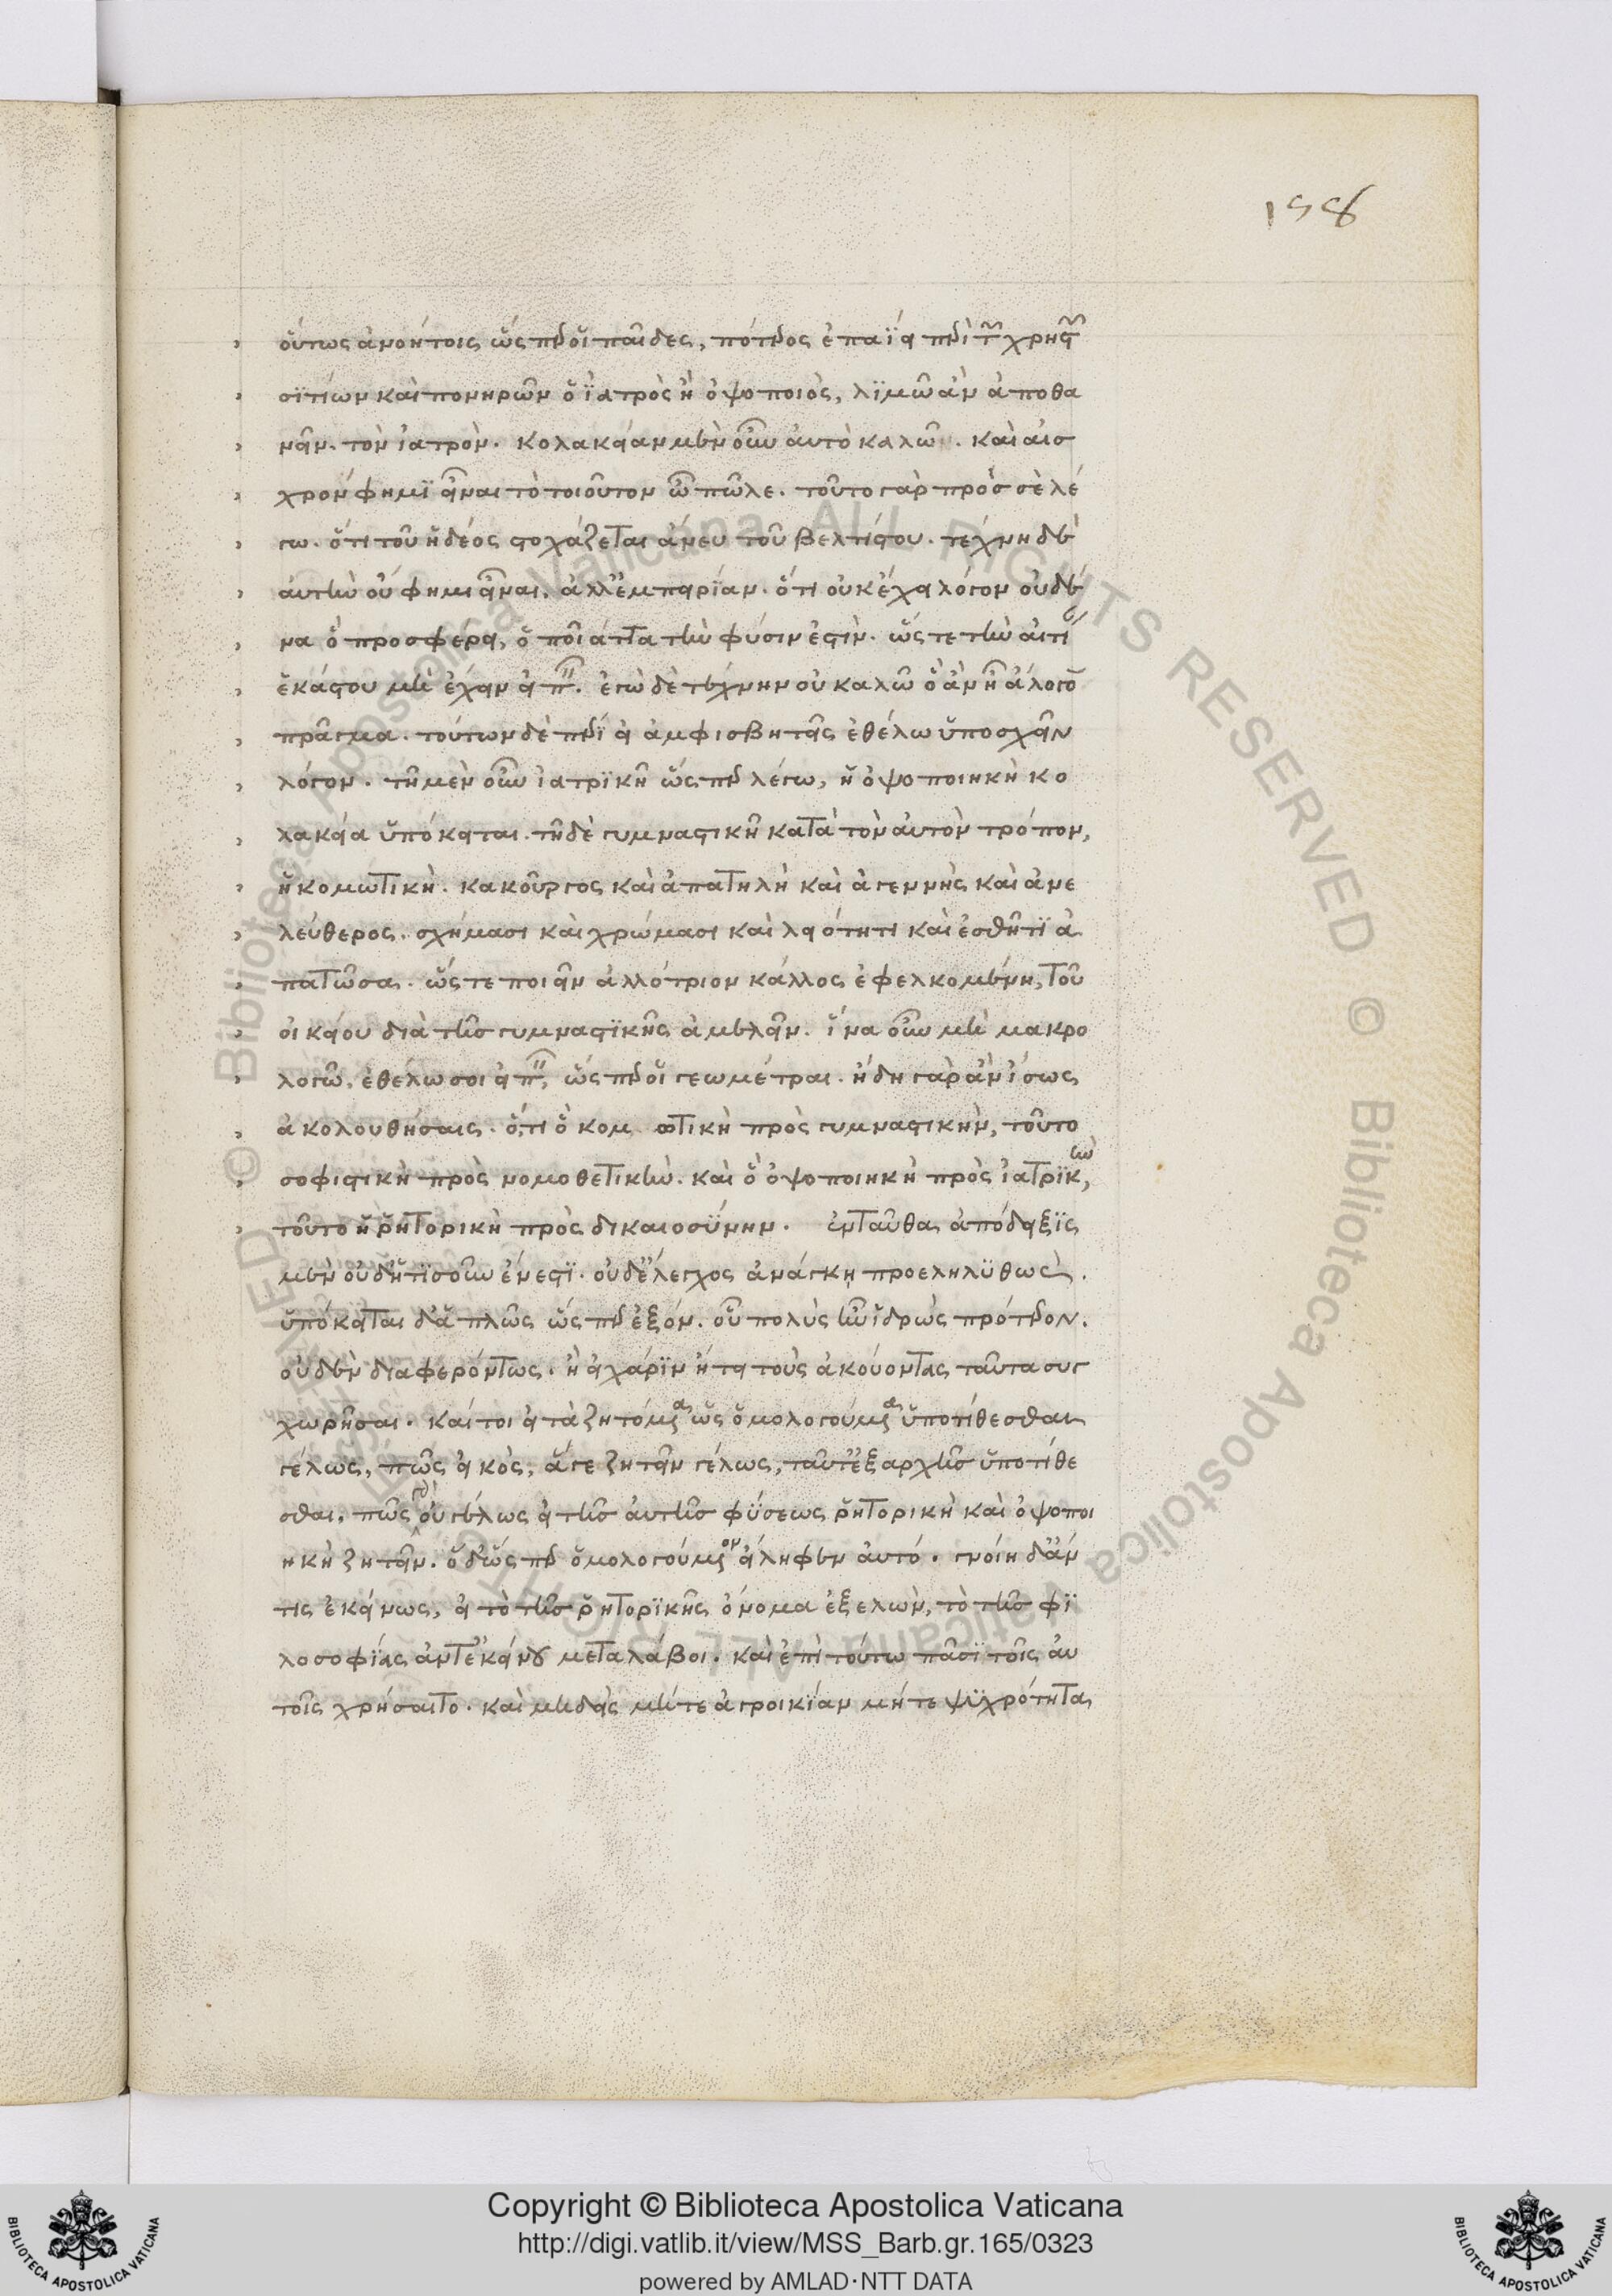 158
οὕτως ἀνοήτοις ὥσπερ οἱ παῖδες, πότερος ἐπαΐει περὶ τῶν χρηστῶν
σιτίων καὶ πονηρῶν ὁ ἰατρὸς ἢ ὀψοποιὸς, λιμῶ ἂν ἀποθα
νεῖν. τὸν ἰατρόν. κολακείαν μὲν οὖν αὐτὸ καλῶ. καὶ αἰσ
χρόν φημι εἶναι τὸ τοιοῦτον ὦ πῶλε. τοῦτο γὰρ πρὸς σὲ λέ
γω. ὅτι τοῦ ἡδέος στοχάζεται ἄνευ τοῦ βελτίστου. τέχνη δὲ
αὐτὴν οὔ φημι εἶναι, ἀλλ' ἐμπειρίαν. ὅτι οὐκ ἔχει λόγον οὐδέ
να ὃ προσφέρει, ὁποῖ' ἄττα τὴν φύσιν ἐστίν. ὥστε τὴν αἰτίαν
ἑκάστου μὴ ἔχειν εἰπεῖν. ἐγὼ δὲ τέχνην οὐ καλῶ ὃ ἂν ἦ ἄλογον
πρᾶγμα. τούτων δὲ πέρι εἰ ἀμφισβητεῖς ἐθέλω ὑποσχεῖν
λόγον. τῆ μὲν οὖν ἰατρικῆ ὥσπερ λέγω, ἡ ὀψοποιηκὴ κο
λακεία ὑπόκειται. τῆ δὲ γυμναστικῆ κατὰ τὸν αὐτὸν τρόπον,
ἡ κομωτικὴ. κακοῦργος καὶ ἀπατηλὴ καὶ ἀγεννὴς καὶ ἀνε
λεύθερος. σχήμασι καὶ χρώμασι καὶ λειότητι καὶ ἐσθῆτι ἀ
πατῶσα. ὥστε ποιεῖν ἀλλότριον κάλλος ἐφελκομένη, τοῦ
οἰκείου διὰ τῆς γυμναστικῆς ἀμελεῖν. ἵνα οὖν μὴ μακρο
λογῶ, ἐθέλω σοι εἰπεῖν, ὥσπερ οἱ γεωμέτραι. ἤδη γὰρ ἂν ἴσως
ἀκολουθήσαις. ὅτι ὃ κομωτικὴ πρὸς γυμναστικὴν, τοῦτο
σοφιστικὴ πρὸς νομοθετικὴν. καὶ ὃ ὀψοποιηκὴ πρὸς ἰατρικὴν,
τοῦτο ἡ ῥητορικὴ πρὸς δικαιοσύνην. ἐνταῦθα ἀπόδειξις
μὲν οὐδ' ἡτισοῦν ἔνεστι. οὐδ' ἔλεγχος ἀνάγκη προεληλυθὼς.
ὑπόκειται δ' ἁπλῶς ὥσπερ ἐξόν. οὗ πολὺς ἦν ἱδρὼς πρότερον.
οὐδὲν διαφερόντως. ἢ εἰ χάριν ἤτει τοὺς ἀκούοντας ταῦτα συγ
χωρῆσαι. καίτοι εἰ τὰ ζητούμενα ὡς ὁμολογούμενα ὑποτίθεσθαι
γέλως, πῶς εἰκὸς, ἅ γε ζητεῖν γέλως, ταῦτ' ἐξαρχῆς ὑποτίθε
σθαι. πῶς γὰρ οὐ γέλως εἰ τῆς αὐτῆς φύσεως ῥητορικὴ καὶ ὀψοποι
ηκὴ ζητεῖν. ὁ δ' ὥσπερ ὁμολογούμενον εἴληφεν αὐτό. γνοίη δ' ἄν
τις ἐκείνως, εἰ τὸ τῆς ῥητορικῆς ὄνομα ἐξελὼν, τὸ τῆς φι
λοσοφίας ἀντ' ἐκείνου μεταλάβοι. καὶ ἐπὶ τούτω πᾶσι τοῖς αὐ
τοῖς χρήσαιτο. καὶ μηδεὶς μήτε ἀγροικίαν μήτε ψυχρότητα
Copyright © Biblioteca Apostolica Vaticana
http://digi.vatlib.it/view/MSS_Barb.gr.165/0323
powered by AMLAD·NTT DATA